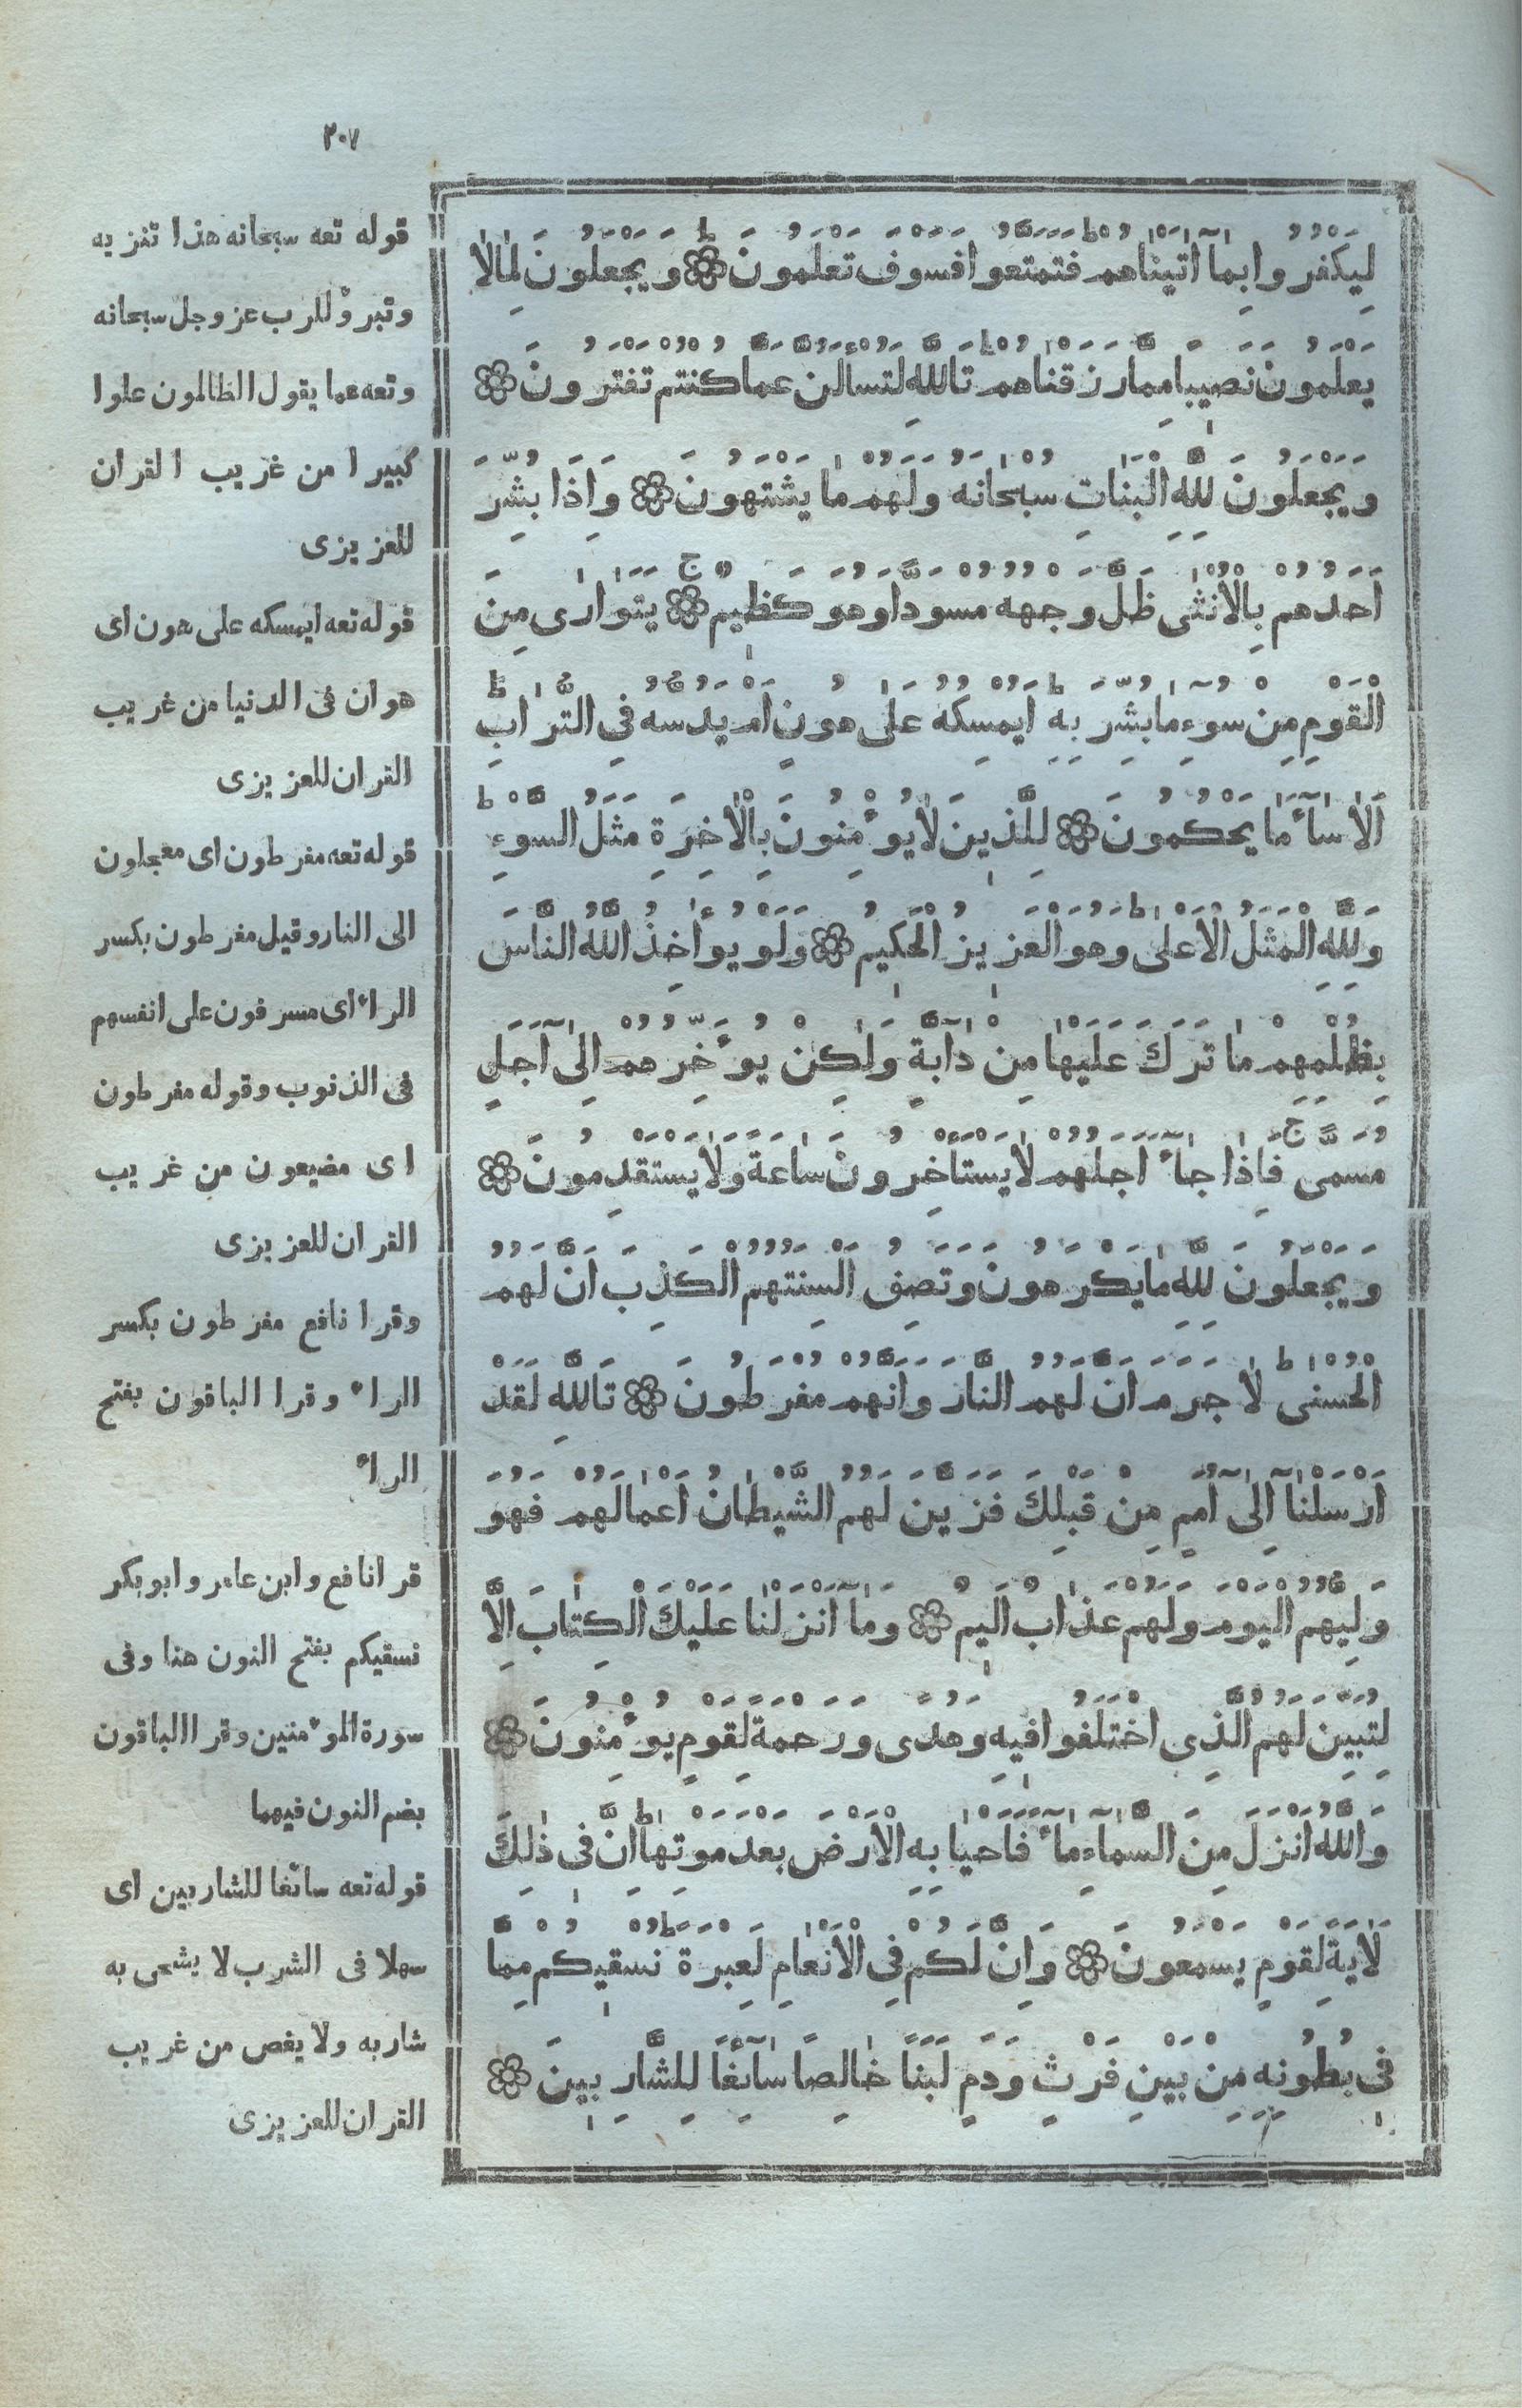 ٢٠٧
لِيَكْفُرُوا بِمَآ اٰتَيْنٰاهُمْ فَتَمَتَّعُوا فَسَوْفَ تَعْلَمُونَ ۞ وَيَجْعَلُونَ لِمٰالٰا
يَعْلَمُونَ نَصِيبًا مِمَّا رَزَقْنٰاهُمْ تَاللّٰهِ لَتُسْأَلُنَّ عَمَّا كُنْتُمْ تَفْتَرُونَ ۞
وَيَجْعَلُونَ لِلّٰهِ الْبَنَاتِ سُبْحٰانَهُ وَلَهُمْ مٰا يَشْتَهُونَ ۞ وَاِذَا بُشِّرَ
اَحَدُهُمْ بِالْاُنْثٰى ظَلَّ وَجْهُهُ مُسْوَدًّا وَهُوَ كَظِيمٌ ۞ يَتَوٰارٰى مِنَ
الْقَوْمِ مِنْ سُوٓءِ مٰا بُشِّرَ بِهِ اَيُمْسِكُهُ عَلٰى هُونٍ اَمْ يَدُسُّهُ فِى التُّرَابِ
اَلٰا سَآءَ مٰا يَحْكُمُونَ ۞ لِلَّذِينَ لٰا يُؤْمِنُونَ بِالْاٰخِرَةِ مَثَلُ السَّوْءِ
وَلِلّٰهِ الْمَثَلُ الْاَعْلٰى وَهُوَ الْعَزِيزُ الْحَكِيمُ ۞ وَلَوْ يُؤٰاخِذُ اللّٰهُ النَّاسَ
بِظُلْمِهِمْ مٰا تَرَكَ عَلَيْهٰا مِنْ دٰآبَّةٍ وَلٰكِنْ يُؤَخِّرُهُمْ اِلٰىٓ اَجَلٍ
مُسَمًّى فَاِذٰا جٰآءَ اَجَلُهُمْ لٰا يَسْتَأْخِرُونَ سٰاعَةً وَلٰا يَسْتَقْدِمُونَ ۞
وَيَجْعَلُونَ لِلّٰهِ مٰا يَكْرَهُونَ وَتَصِفُ اَلْسِنَتُهُمُ الْكَذِبَ اَنَّ لَهُمُ
الْحُسْنٰى لٰا جَرَمَ اَنَّ لَهُمُ النَّارَ وَاَنَّهُمْ مُفْرَطُونَ ۞ تَاللّٰهِ لَقَدْ
اَرْسَلْنٰآ اِلٰىٓ اُمَمٍ مِنْ قَبْلِكَ فَزَيَّنَ لَهُمُ الشَّيْطٰانُ اَعْمٰالَهُمْ فَهُوَ
وَلِيُّهُمُ الْيَوْمَ وَلَهُمْ عَذٰابٌ اَلِيمٌ ۞ وَمٰآ اَنْزَلْنٰا عَلَيْكَ الْكِتٰابَ اِلَّا
لِتُبَيِّنَ لَهُمُ الَّذِى اخْتَلَفُوا فِيهِ وَهُدًى وَرَحْمَةً لِقَوْمٍ يُؤْمِنُونَ ۞
وَاللّٰهُ اَنْزَلَ مِنَ السَّمٰآءِ مٰآءً فَاَحْيٰا بِهِ الْاَرْضَ بَعْدَ مَوْتِهٰا اِنَّ فِى ذٰلِكَ
لَاٰيَةً لِقَوْمٍ يَسْمَعُونَ ۞ وَاِنَّ لَكُمْ فِى الْاَنْعٰامِ لَعِبْرَةً نَسْقِيكُمْ مِمَّا
فِى بُطُونِهِ مِنْ بَيْنِ فَرْثٍ وَدَمٍ لَبَنًا خٰالِصًا سٰآئِغًا لِلشَّارِبِينَ ۞
قوله تعه سبحانه هذا تنزيه
وتبرؤ للرب عز وجل سبحانه
وتعه عما يقول الظالمون علوا
كبيرا من غريب القران
للعزيزى
قوله تعه ايمسكه على هون اى
هوان فى الدنيا من غريب
القران للعزيزى
قوله تعه مفرطون اى معجلون
الى النار وقيل مفرطون بكسر
الراء اى مسرفون على انفسهم
فى الذنوب وقوله مفرطون
اى مضيعون من غريب
القران للعزيزى
وقرا نافع مفرطون بكسر
الراء وقرا الباقون بفتح
الراء
قرا نافع وابن عامر وابو بكر
نسقيكم بفتح النون هنا وفى
سورة المؤمنين وقرا الباقون
بضم النون فيهما
قوله تعه سائغا للشاربين اى
سهلا فى الشرب لا يشجى به
شاربه ولا يغص من غريب
القران للعزيزى